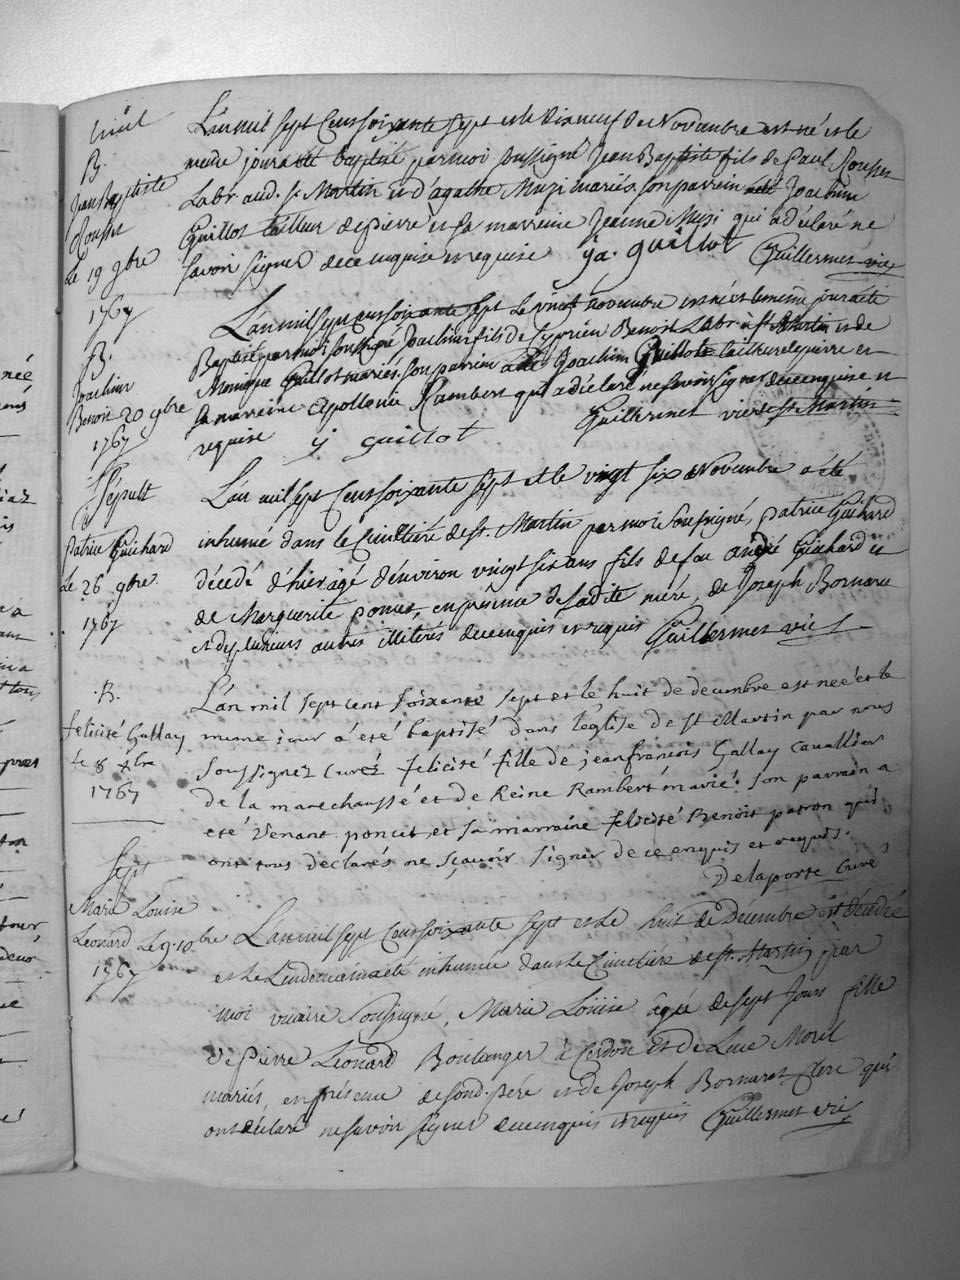 B.
Jean Baptiste
Rousset
Le 19 9bre
1767
L'an mil sept Cens soixante sept et le dix neuf de Novembre est né et le
meme jour a eté baptisé par moi soussigné Jean Baptiste fils de Paul Rousset
Labr. aud. St Martin et d'agathe Muzi mariés. son parrain a eté Joachim
Guillot tailleur de pierre et sa marreine Jeanne Musi qui a declaré ne
savoir signer de ce enquise et requise ja. guillot Guillermet vic
B.
Joachim
Benoit 20 9bre
1767
L'an mil sept cens soixante sept le vint novembre est né et le meme jour a eté
Baptisé par moi soussigné Joachim fils de Cyprien Benoit Labr. à St Martin et de
Monique Guillot mariés. son parrain a eté Joachim Guillot tailleur de pierre et
sa mareine Apollonie Rambert qui a déclaré ne savoir signer de ce enquise et
requise j guillot Guillermet vic de St Martin
Sépult
patrice Guichard
Le 26 9bre
1767
L'an mil sept Cens soixante sept et le vingt six de Novembre a été
inhumé dans le Cimetière de St. Martin par moi soussigné, patrice Guichard
décedé d'hier âgé d'environ vingt six ans fils de feu andré Guichard et
de Marguerite poncet, en présence de sadite mère, de Joseph Bornarec
et de plusieurs autres illiterés de ce enquis et requis Guillermet vic
B.
felicité Gallay
Le 8 xbre
1767
L'an mil sept cent soixante sept et le huit de decembre est neé et le
meme jour a eté baptisé dans l'eglise de St Martin par nous
soussignez Curéz felicité fille de jean francois Gallay Cavallier
de la marechaussé et de Reine Rambert marié: son parrain a
eté Venant poncet, et sa marraine felicité Benoit patron qui
ont tous declarés ne sçavoir signer de ce enquis et requis.
Delaporte Curé
Sept
Marie Louise
Leonard Le 9. 10.bre
1767
L'an mil sept Cens soixante sept et le huit de Décembre est décedée
et le Lendemain a eté inhumée dans le Cimetière de St. Martin par
moi vicaire soussigné, Marie Louise agée de sept jours fille
de Pierre Léonard Boulanger à Cerdon et de Luce Morel
mariés, en présence de sond. père et de Joseph Bornarec Clerc qui
ont déclaré ne savoir signer de ce enquis et requis Guillermet vic